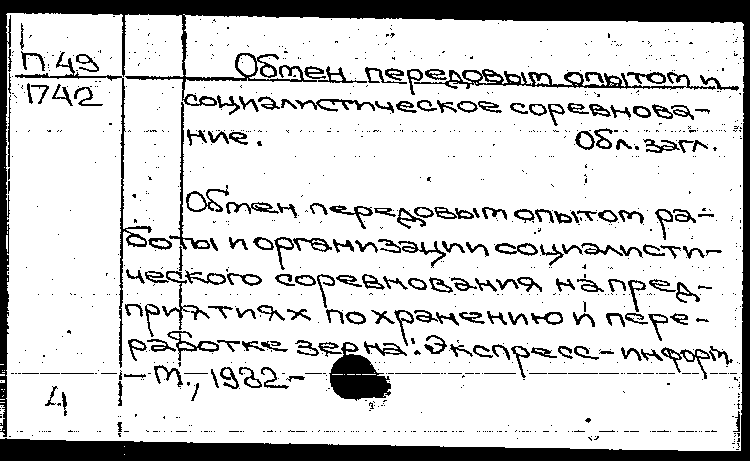 П49 Обмен передовым опытом и
П42 социалистическое соревнова-
ние. Обл. загл.
Обмен передовым опытом ра-
боты и организации социалисти-
ческого соревнования на пред-
приятиях по хранению и пере-
работке зерна: Экспресс-информ.
- М., 1982.-
4